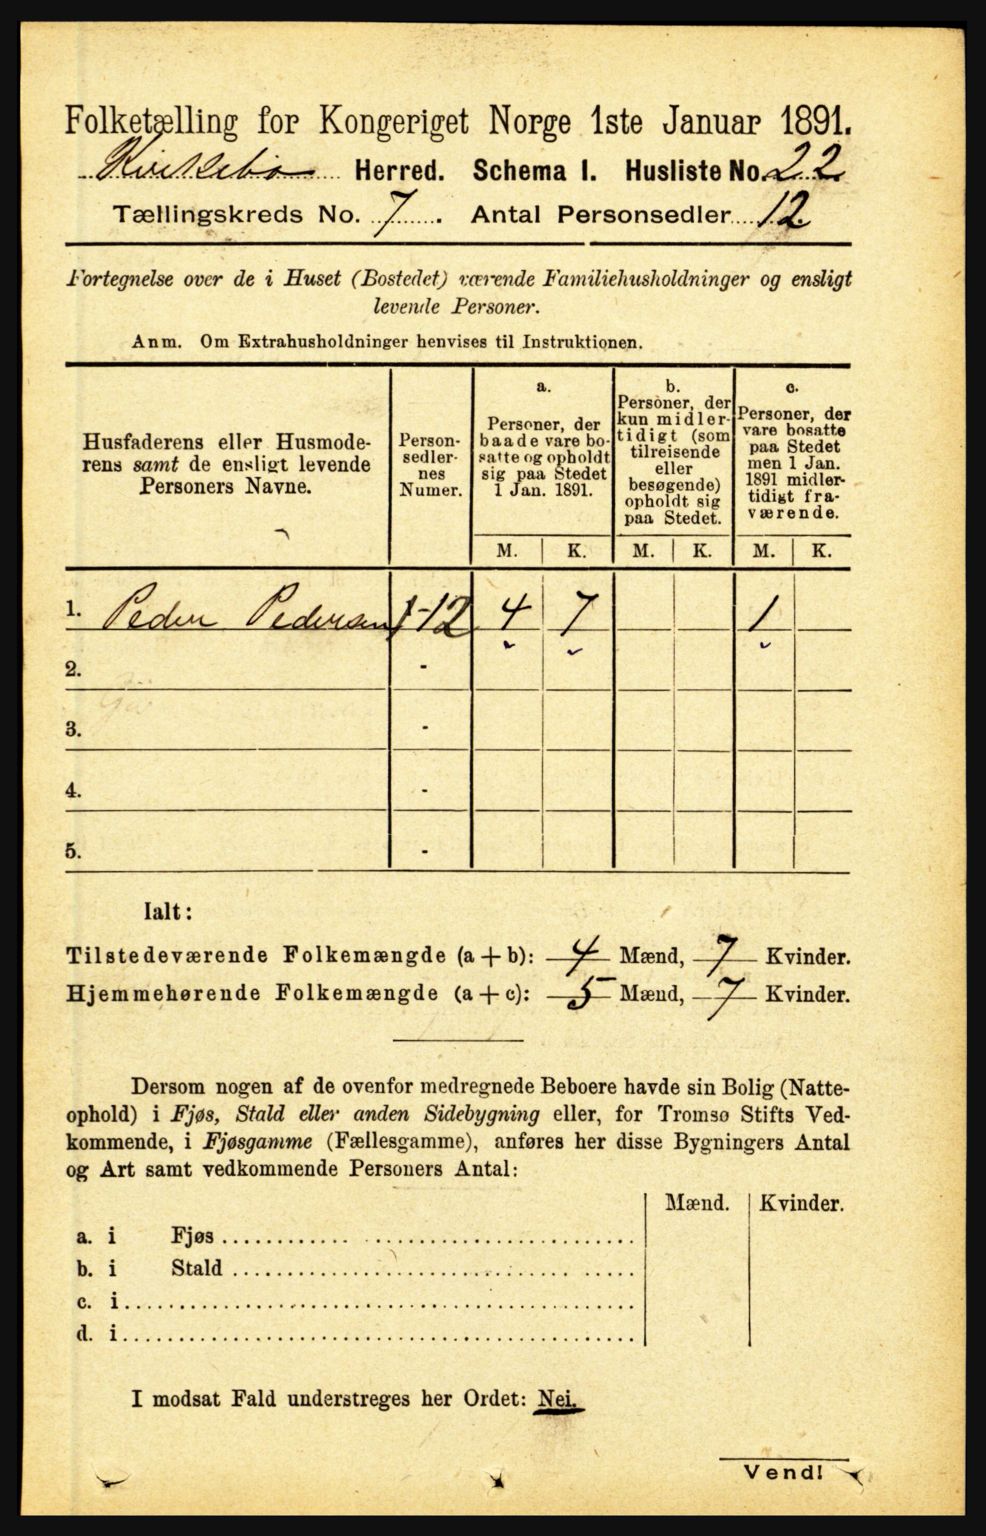 Folketælling for Kongeriget Norge 1ste Januar 1891.
Kirkebø Herred. Schema I. Husliste No. 22.
Tællingskreds No. 7. Antal Personsedler 12.
Fortegnelse over de i Huset (Bostedet) værende Familiehusholdninger og ensligt
levende Personer.
Anm. Om Extrahusholdninger henvises til Instruktionen.
Husfaderens eller Husmode-
rens samt de ensligt levende
Personers Navne.
Person-
sedler-
nes
Numer.
a.
Personer, der
baade vare bo-
satte og opholdt
sig paa Stedet
1 Jan. 1891.
b.
Personer, der
kun midler-
tidigt (som
tilreisende
eller
besøgende)
opholdt sig
paa Stedet.
c.
Personer, der
vare bosatte
paa Stedet
men 1 Jan.
1891 midler-
tidigt fra-
værende.
M. K. M. K. M. K.
1. Peder Pedersen 1-12 4 7 1
2. -
3. -
4. -
5. -
Ialt:
Tilstedeværende Folkemængde (a + b): 4 Mænd, 7 Kvinder.
Hjemmehørende Folkemængde (a + c): 5 Mænd, 7 Kvinder.
Dersom nogen af de ovenfor medregnede Beboere havde sin Bolig (Natte-
ophold) i Fjøs, Stald eller anden Sidebygning eller, for Tromsø Stifts Ved-
kommende, i Fjøsgamme (Fællesgamme), anføres her disse Bygningers Antal
og Art samt vedkommende Personers Antal:
Mænd. Kvinder.
a. i Fjøs
b. i Stald
c. i
d. i
I modsat Fald understreges her Ordet: Nei.
Vend!